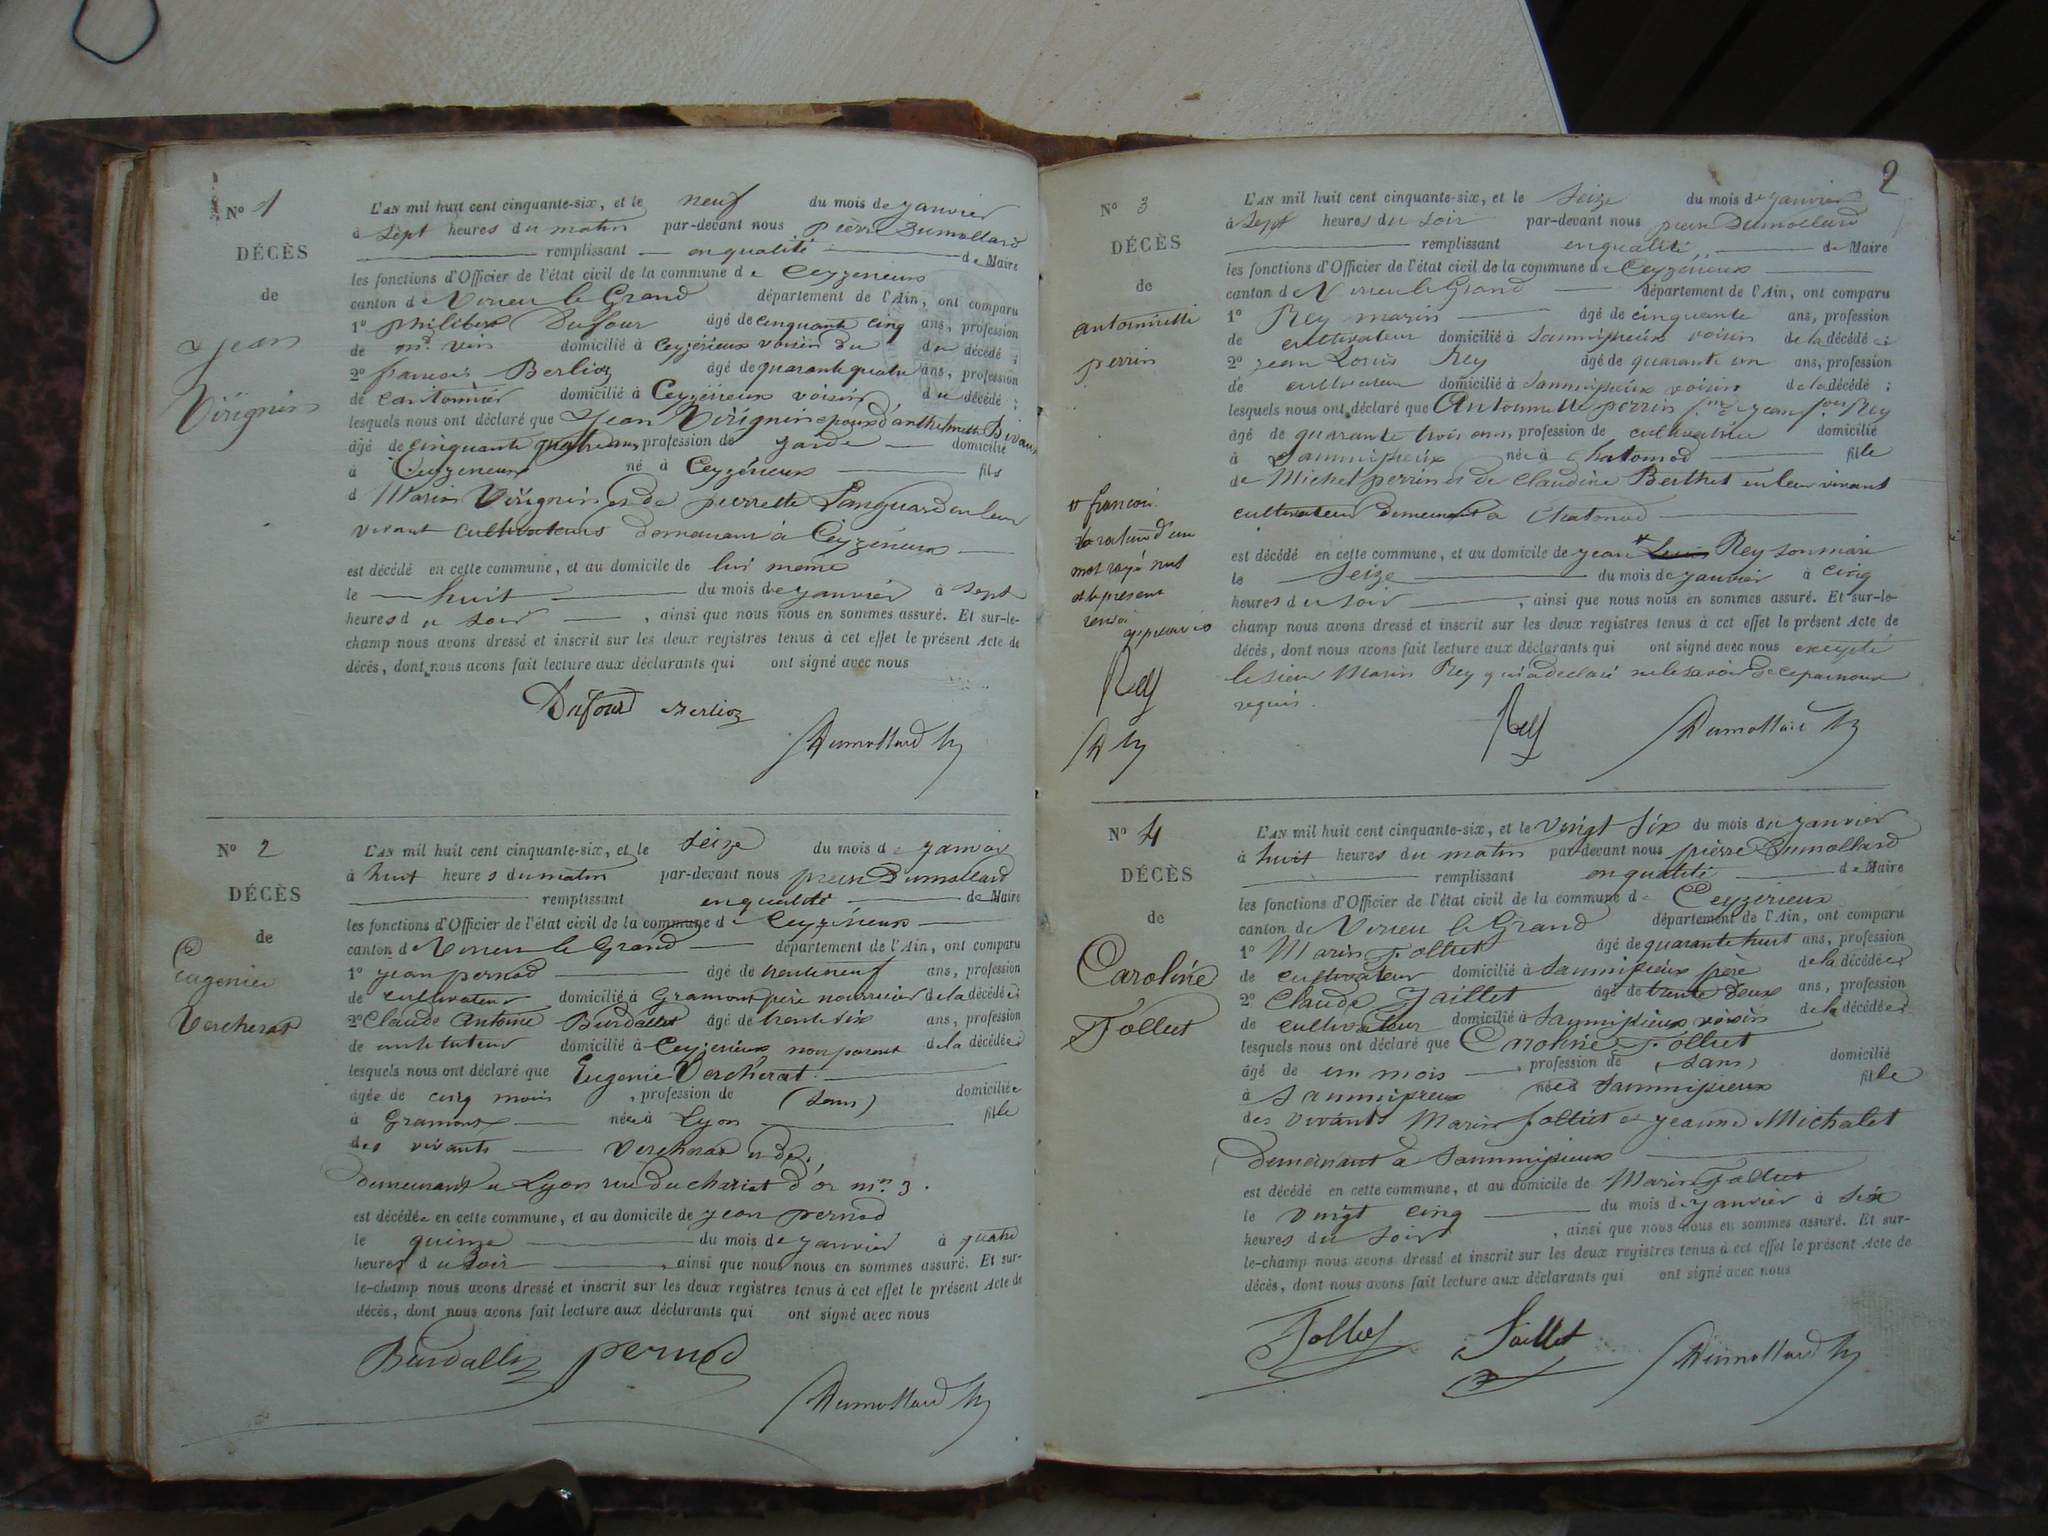 No 1
DÉCÈS
de
Jean
Virignin
L'AN mil huit cent cinquante-six, et le neuf du mois de janvier
à sept heures du matin par-devant nous pierre Dumollard
remplissant en qualité de Maire
les fonctions d'Officier de l'état civil de la commune de Ceyzerieux
canton de Virieu le Grand département de l'Ain, ont comparu
1o philibert Dufour âgé de cinquante cinq ans, profession
de md. vin domicilié à Ceyzérieux voisin du du décédé;
2o francois Berlioz âgé de quarante quatre ans, profession
de cantonnier domicilié à Ceyzérieux voisin du décédé;
lesquels nous ont déclaré que Jean Virignin epoux d'anthelmette
âgé de cinquante quatre ans, profession de garde domicilié
à Ceyzerieux né à Ceyzérieux fils
d Marin Virignin et de pierrette en leur
vivant cultivateurs demeurant à Ceyzérieux
est décédé en cette commune, et au domicile de lui meme
le huit du mois de janvier à sept
heures du soir, ainsi que nous nous en sommes assuré. Et sur-le-
champ nous avons dressé et inscrit sur les deux registres tenus à cet effet le présent Acte de
décès, dont nous avons fait lecture aux déclarants qui ont signé avec nous
Dufour Berlioz
Dumollard
No 2
DÉCÈS
de
Eugenie
Vercherat
L'AN mil huit cent cinquante-six, et le seize du mois d janvier
à huit heures du matin par-devant nous pierre Dumollard
remplissant en qualité de Maire
les fonctions d'Officier de l'état civil de la commune de Ceyzérieux
canton de Virieu le Grand département de l'Ain, ont comparu
1o jean pernod âgé de trente neuf ans, profession
de cultivateur domicilié à Gramont père nourricier de la décédée;
2o Claude Antoine Burdallet âgé de trente six ans, profession
de instituteur domicilié à Ceyzerieux non parent de la décédée;
lesquels nous ont déclaré que Eugenie Vercherat
âgée de cinq mois, profession de (sans) domiciliée
à Gramont née à Lyon fille
des vivants Vercherat et de
demeurant a Lyon rue du chariot d'or no. 3.
est décédée en cette commune, et au domicile de jean pernod
le quinze du mois de janvier à quatre
heures du soir, ainsi que nous nous en sommes assuré. Et sur-
le-champ nous avons dressé et inscrit sur les deux registres tenus à cet effet le présent Acte de
décès, dont nous avons fait lecture aux déclarants qui ont signé avec nous
Burdallet pernod
Dumollard
2
No 3
DÉCÈS
de
antoinette
perrin
L'AN mil huit cent cinquante-six, et le Seize du mois de janvier
à sept heures du soir par-devant nous pierre Dumollard
remplissant en qualité de Maire
les fonctions d'Officier de l'état civil de la commune de Ceyzérieux
canton de Virieu le Grand département de l'Ain, ont comparu
1o Rey marin âgé de cinquante ans, profession
de cultivateur domicilié à voisin de la décédée;
2o jean Louis Rey âgé de quarante un ans, profession
de cultivateur domicilié à voisin de la décédée;
lesquels nous ont déclaré que Antoinette perrin jean Rey
âgé de quarante trois ans, profession de cultivatrice domicilié
à née à Chatonod fille
de Michel perrin et de Claudine Berthet en leur vivant
cultivateur demeurant a Chatonod
est décédé en cette commune, et au domicile de jean * Louis Rey son mari
le Seize du mois de janvier à cinq
heures du soir, ainsi que nous nous en sommes assuré. Et sur-le-
champ nous avons dressé et inscrit sur les deux registres tenus à cet effet le présent Acte de
décès, dont nous avons fait lecture aux déclarants qui ont signé avec nous excepté
le sieur Marin Rey qui a declaré ne le savoir de ce par nous
requis.
* francois
la rature d'un
mot rayé nul
et le present
renvoi
approuvés
Rey
Rey
Dumollard
No 4
DÉCÈS
de
Caroline
Folliet
L'AN mil huit cent cinquante-six, et le vingt six du mois de janvier
à huit heures du matin par-devant nous pierre Dumollard
remplissant en qualité de Maire
les fonctions d'Officier de l'état civil de la commune de Ceyzerieux
canton de Virieu le Grand département de l'Ain, ont comparu
1o Marin Folliet âgé de quarante huit ans, profession
de cultivateur domicilié à père de la décédée;
2o Claude Jaillet âgé de trente deux ans, profession
de cultivateur domicilié à voisin de la décédée;
lesquels nous ont déclaré que Caroline Folliet
âgé de un mois, profession de (sans) domicilié
à née à fille
des vivants Marin folliet et jeanne Michalet
demeurant à
est décédé en cette commune, et au domicile de Marin Folliet
le vingt cinq du mois de janvier à six
heures du soir, ainsi que nous nous en sommes assuré. Et sur-
le-champ nous avons dressé et inscrit sur les deux registres tenus à cet effet le présent Acte de
décès, dont nous avons fait lecture aux déclarants qui ont signé avec nous
Folliet Jaillet
Dumollard